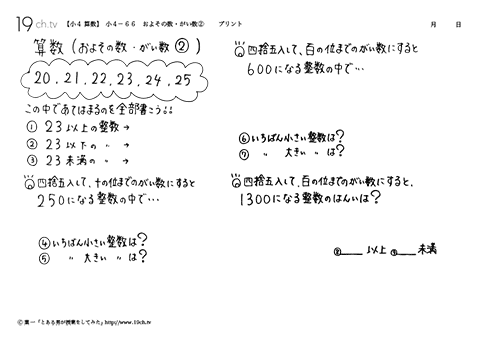 19ch.tv 【小4 算数】 小4-66 およその数・がい数② プリント 月 日
算数(およその数・がい数②)
20.21.22.23.24.25
この中であてはまるのを全部書こう!!
① 23以上の整数→
② 23以下の 〃 →
③ 23未満の 〃 →
四捨五入して、十の位までのがい数にすると
250になる整数の中で…
④いちばん小さい整数は?
⑤ 〃 大きい 〃 は?
四捨五入して、百の位までのがい数にすると
600になる整数の中で…
⑥いちばん小さい整数は?
⑦ 〃 大きい 〃 は?
四捨五入して、百の位までのがい数にすると、
1300になる整数のはんいは?
⑧ 以上 ⑨ 未満
©葉一「とある男が授業をしてみた」http://www.19ch.tv